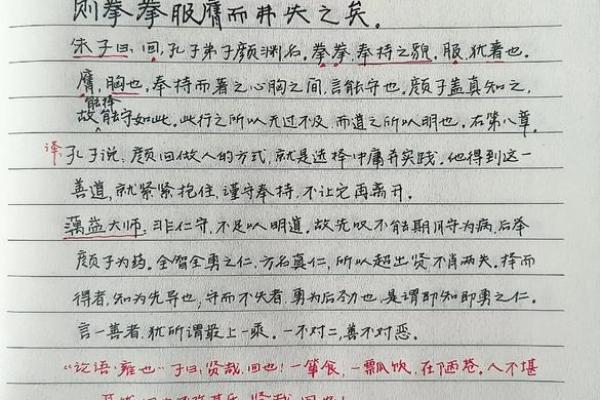 则拳拳服膺而弗失之矣.
朱子曰,回,孔子弟子颜渊名.拳拳,奉持之貌,服,犹著也.
膺,胸也,奉持而著之心胸之间,言能守也.颜子盖真知之,
能择
故能守如此.此行之所以无过不及,而道之所以明也.右第八章.
译:孔子说:颜回做人的方式,就是选择中庸并实践.他得到这一
善道,就紧紧抱住,谨守奉持,不让它再离开.
蕅益大师:非仁守,不足以明道.故先叹不能期月守为病,后举
颜子为药.全智全勇之仁,方名真仁,所以超出贤不肖两失.择而
得者,知为先导也,守而不失者,勇为后劲也,是谓即知即勇之仁.
言一善者,犹所谓最上一乘.一不对二,善不对恶.
“论语·雍也”子曰:贤哉,回也!一箪食,一瓢饮,在陋巷.人不堪